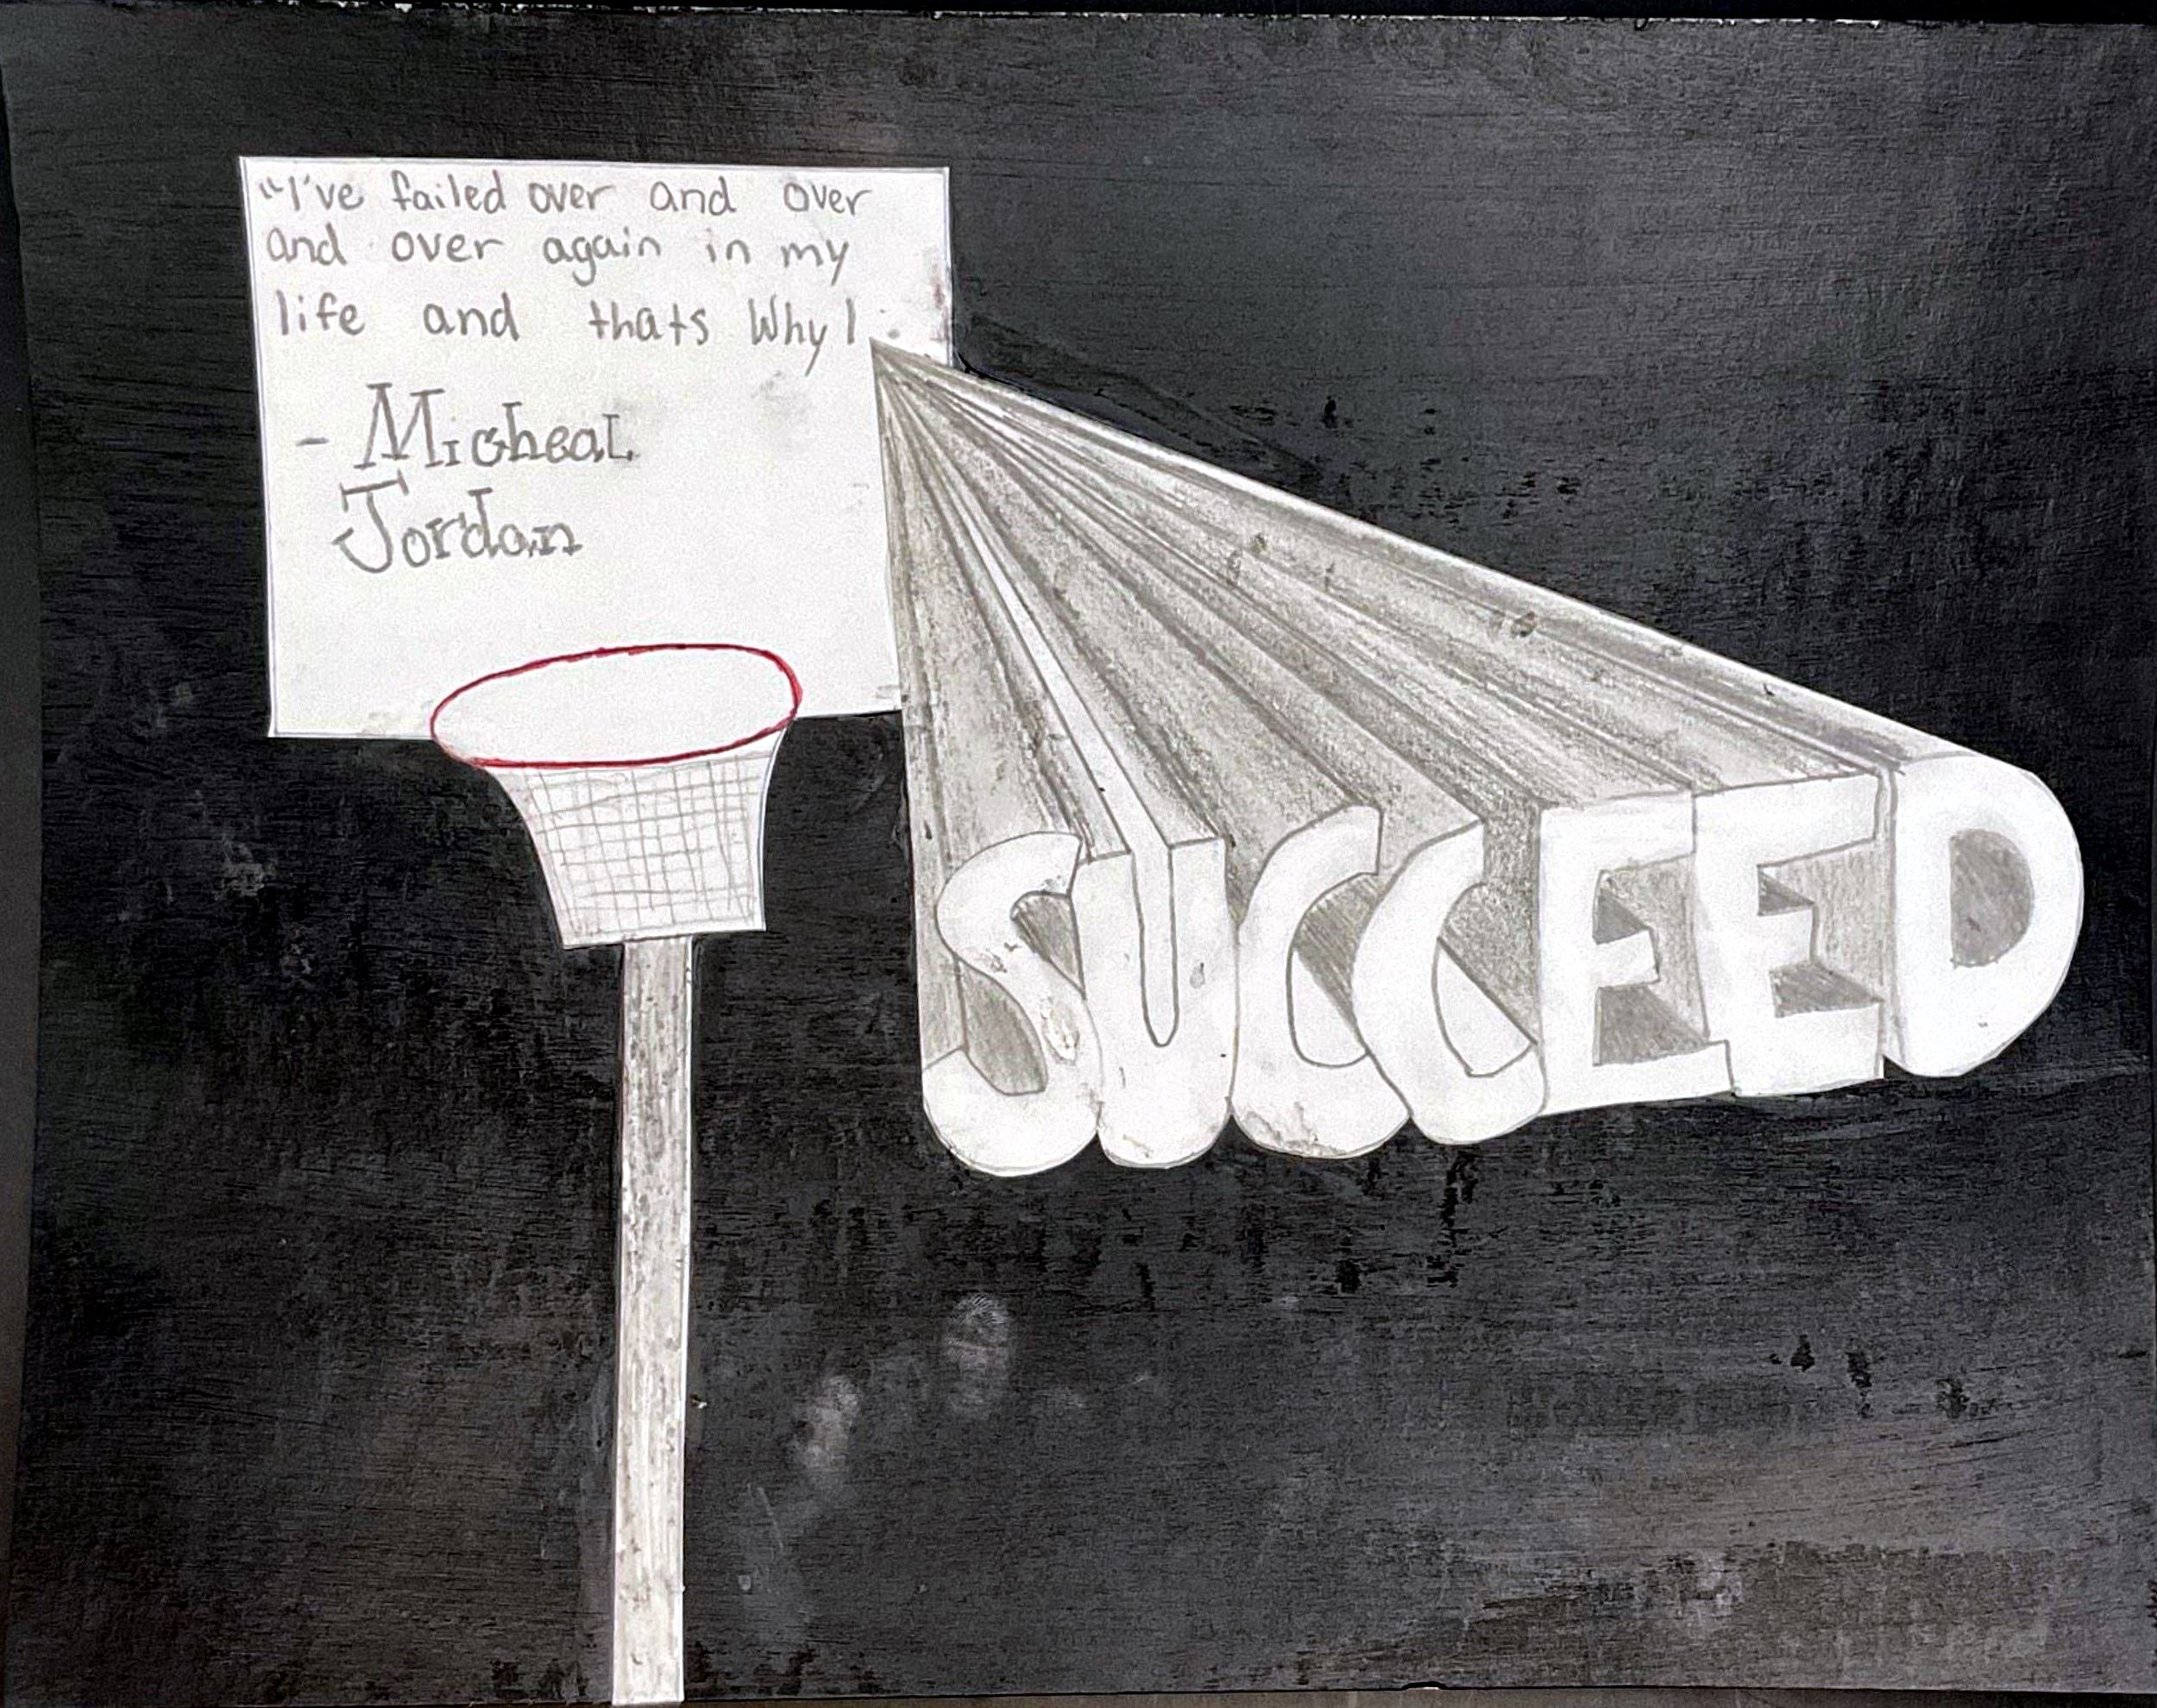 "I've failed over and over
and over again in my
life and thats Why I
SUCCEED
- Micheal
Jordan